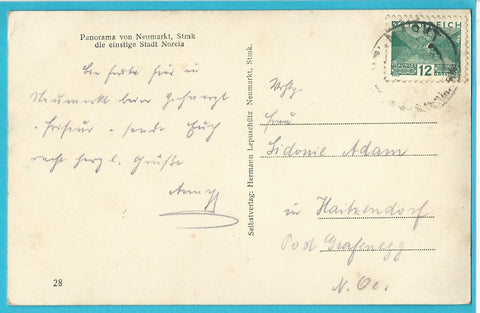 Panorama von Neumarkt, Stmk
die einstige Stadt Noreia
Bin heute hier in
Neumarkt beim Zahnarzt
- Friseur - sende Euch
recht herzl. Grüße
28
Selbstverlag: Hermann Lepuschütz Neumarkt, Stmk.
ÖSTERREICH
12
Frau
Sidonie Adam
in Haitzendorf
Post Grafenegg
N. Oe.